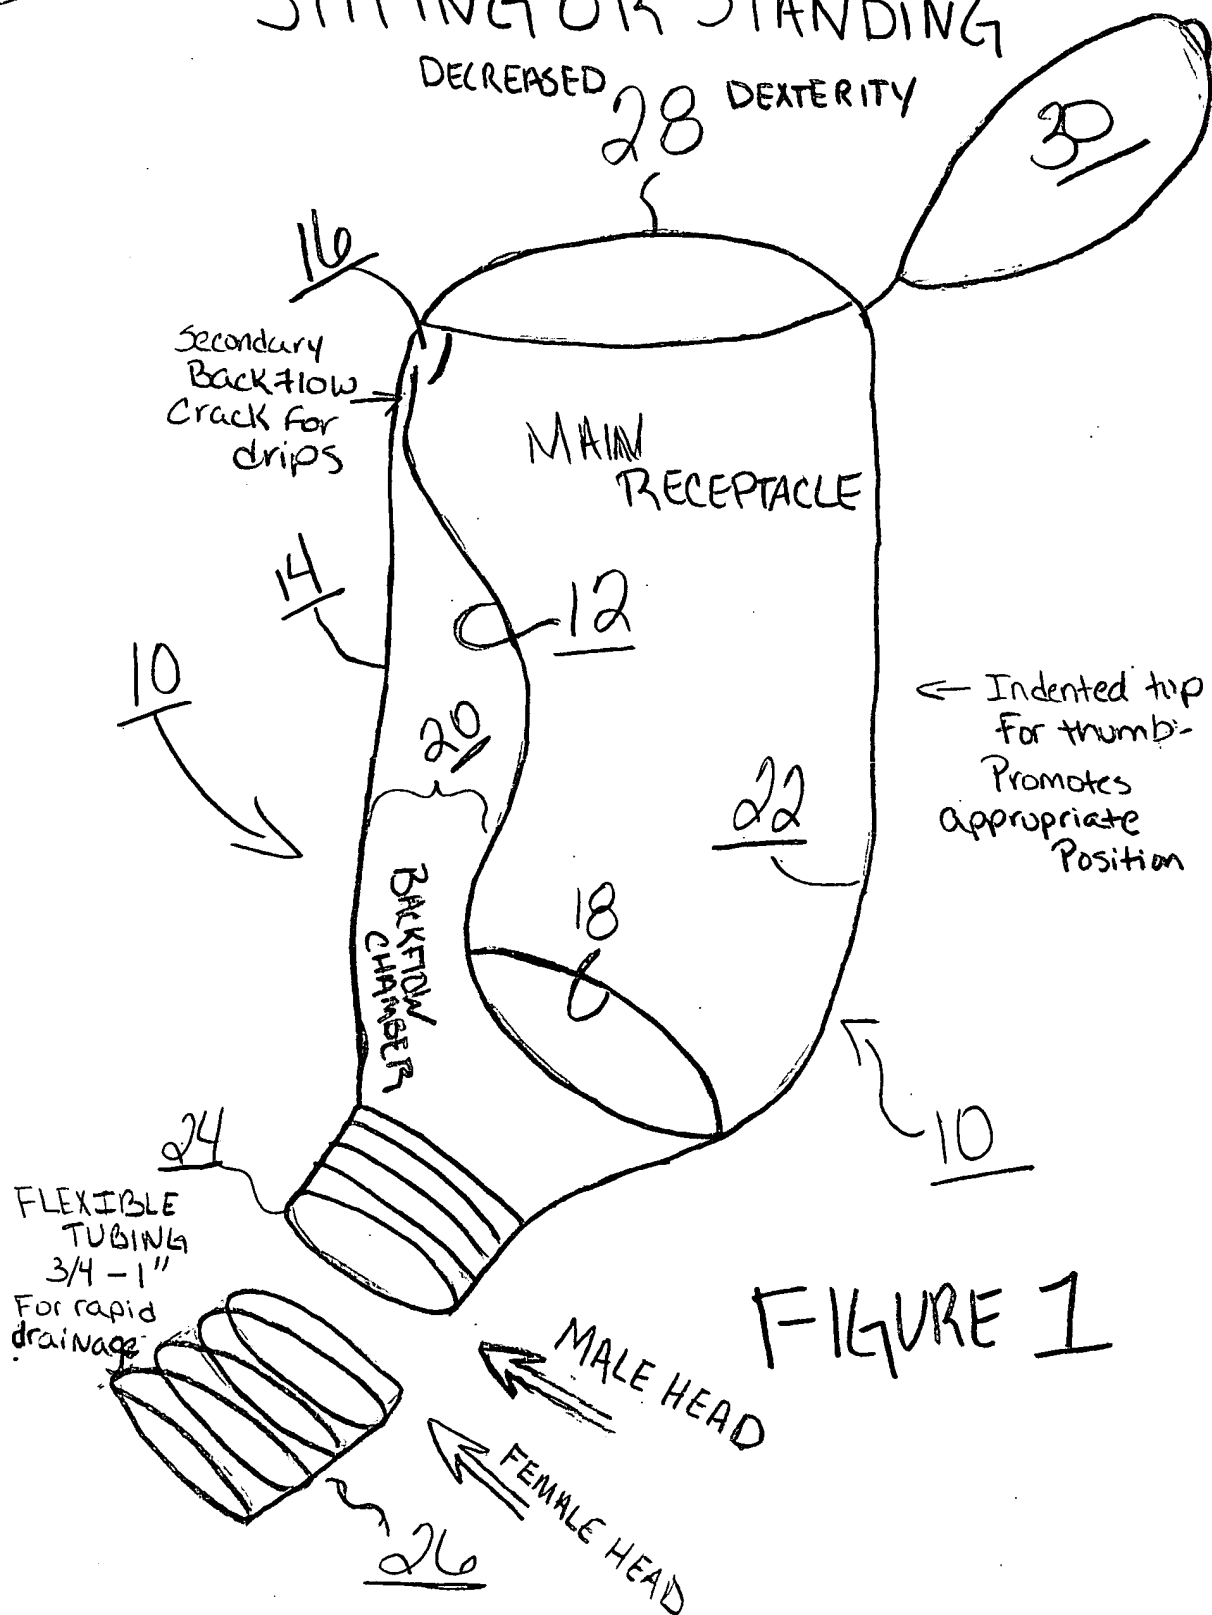 SITTING OR STANDING
DECREASED DEXTERITY
28
30
16
Secondary
Backflow
Crack For
drips
MAIN
RECEPTACLE
14
12
10
20
← Indented tip
For thumb-
Promotes
appropriate
Position
22
BACKFLOW
CHAMBER
18
10
24
FLEXIBLE
TUBING
3/4 - 1"
For rapid
drainage
FIGURE 1
MALE HEAD
FEMALE HEAD
26